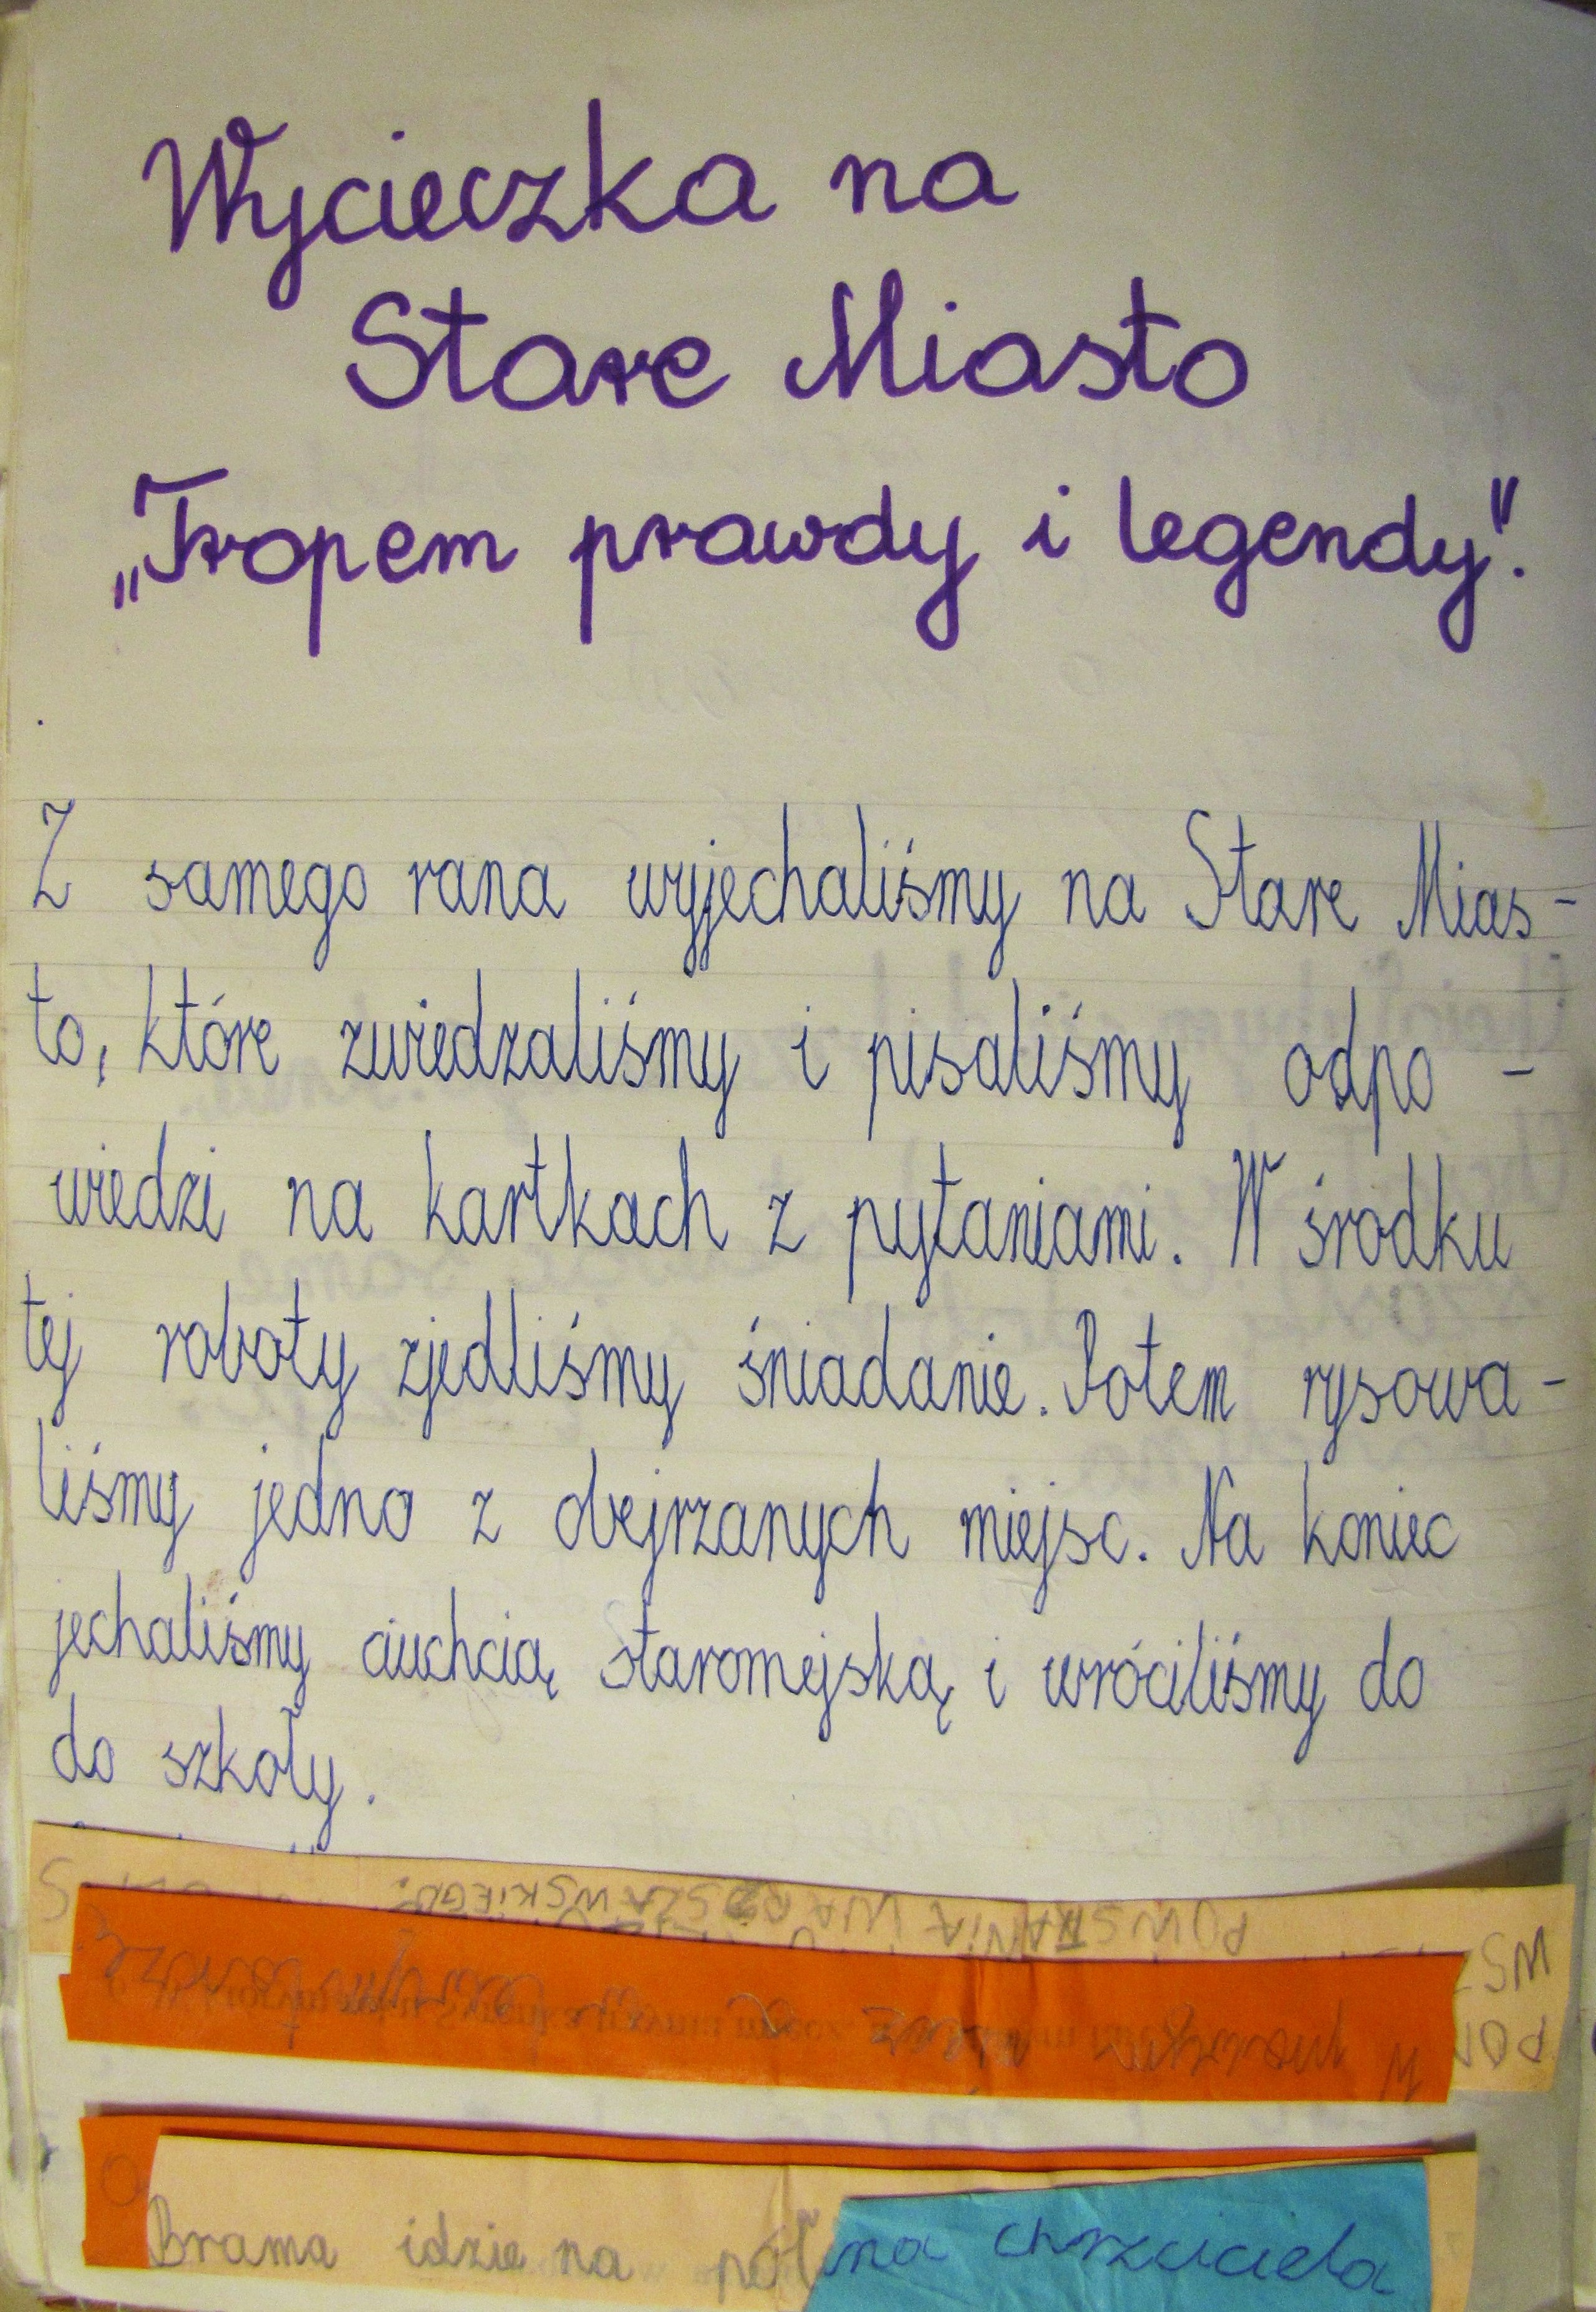 Wycieczka na
Stare Miasto
„Tropem prawdy i legendy".
Z samego rana wyjechaliśmy na Stare Mias-
to, które zwiedzaliśmy i pisaliśmy odpo -
wiedzi na kartkach z pytaniami. W środku
tej roboty zjedliśmy śniadanie. Potem rysowa-
liśmy jedno z obejrzanych miejsc. Na koniec
jechaliśmy ciuchcią staromejską i wróciliśmy do
do szkoły.
POWSTANIA WARSZAWSKIEGO?
Brama idzie na pół
na chrzciciela